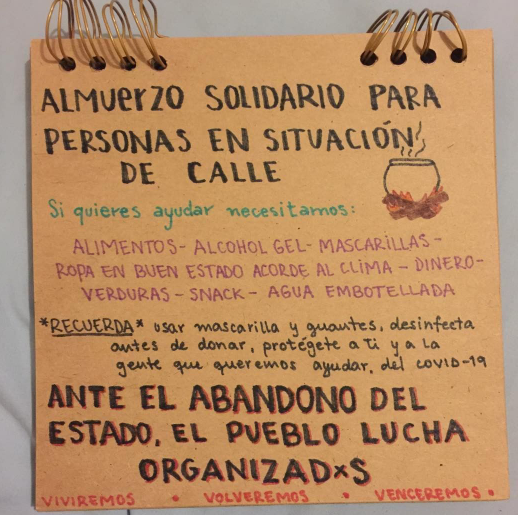 ALMUERZO SOLIDARIO PARA
PERSONAS EN SITUACIÓN
DE CALLE
Si quieres ayudar necesitamos:
ALIMENTOS - ALCOHOL GEL - MASCARILLAS -
ROPA EN BUEN ESTADO ACORDE AL CLIMA - DINERO -
VERDURAS - SNACK - AGUA EMBOTELLADA
*RECUERDA* usar mascarilla y guantes, desinfecta
antes de donar, protégete a ti y a la
gente que queremos ayudar, del COVID-19
ANTE EL ABANDONO DEL
ESTADO, EL PUEBLO LUCHA
ORGANIZADXS
VIVIREMOS • VOLVEREMOS • VENCEREMOS •